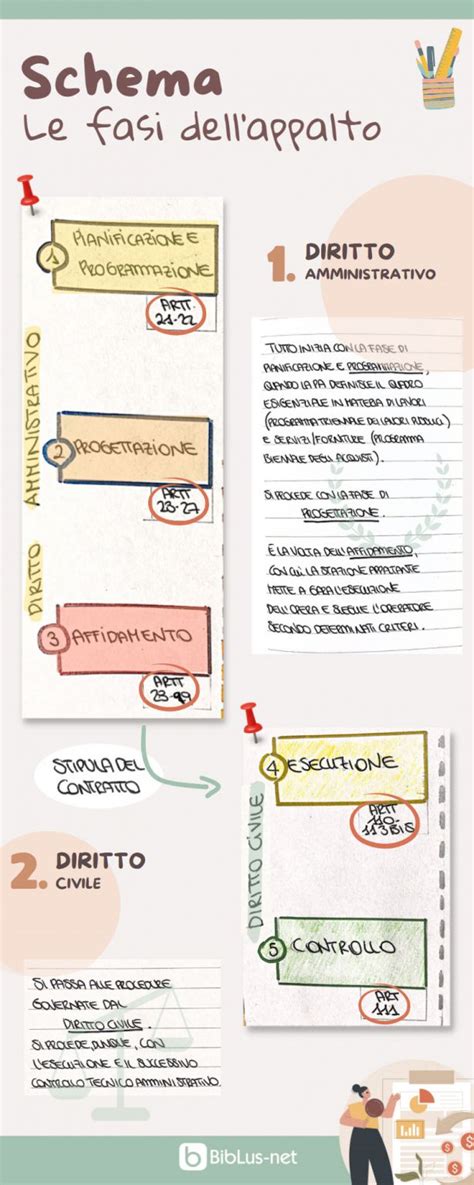 Schema
Le fasi dell'appalto
1 PIANIFICAZIONE E
PROGRAMMAZIONE
ARTT.
21-22
DIRITTO AMMINISTRATIVO
2 PROGETTAZIONE
ARTT
23-27
3 AFFIDAMENTO
ARTT
28-99
1. DIRITTO
AMMINISTRATIVO
TUTTO INIZIA CON LA FASE DI
PIANIFICAZIONE E PROGRAMMAZIONE,
QUANDO LA PA DEFINISCE IL QUADRO
ESIGENZIALE IN MATERIA DI LAVORI
(PROGRAMMA TRIENNALE DEI LAVORI PUBBLICI)
E SERVIZI/FORNITURE (PROGRAMMA
BIENNALE DEGLI ACQUISTI).
SI PROCEDE CON LA FASE DI
PROGETTAZIONE.
È LA VOLTA DELL'AFFIDAMENTO,
CON CUI LA STAZIONE APPALTANTE
METTE A GARA L'ESECUZIONE
DELL'OPERA E SCEGLIE L'OPERATORE
SECONDO DETERMINATI CRITERI.
STIPULA DEL
CONTRATTO
4 ESECUZIONE
ARTT
110-
113BIS
DIRITTO CIVILE
5 CONTROLLO
ART
111
2. DIRITTO
CIVILE
SI PASSA ALLE PROCEDURE
GOVERNATE DAL
DIRITTO CIVILE.
SI PROCEDE, DUNQUE, CON
L'ESECUZIONE E IL SUCCESSIVO
CONTROLLO TECNICO AMMINISTRATIVO.
b BibLus-net